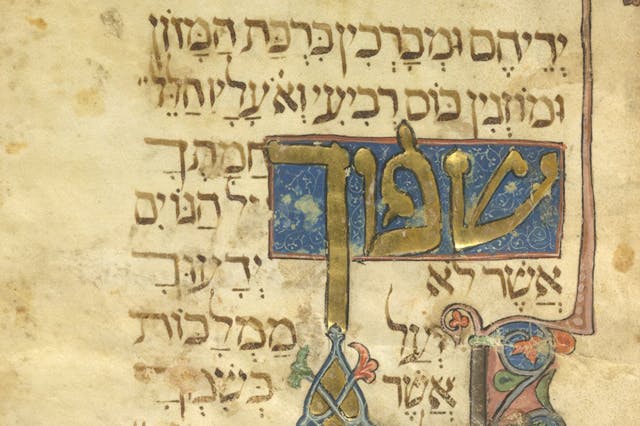 יְדֵיהֶם וּמְבָרְכִין בִּרְכַּת הַמָּזוֹן
וּמוֹזְגִין כּוֹס רְבִיעִי וְאֹ עָלָיו הַלֵּ
שפוך חֲמָתְךָ
אֶל הַגּוֹיִם
אֲשֶׁר לֹא יְדָעוּךָ
וְעַל מַמְלָכוֹת
אֲשֶׁר בְּשִׁמְךָ